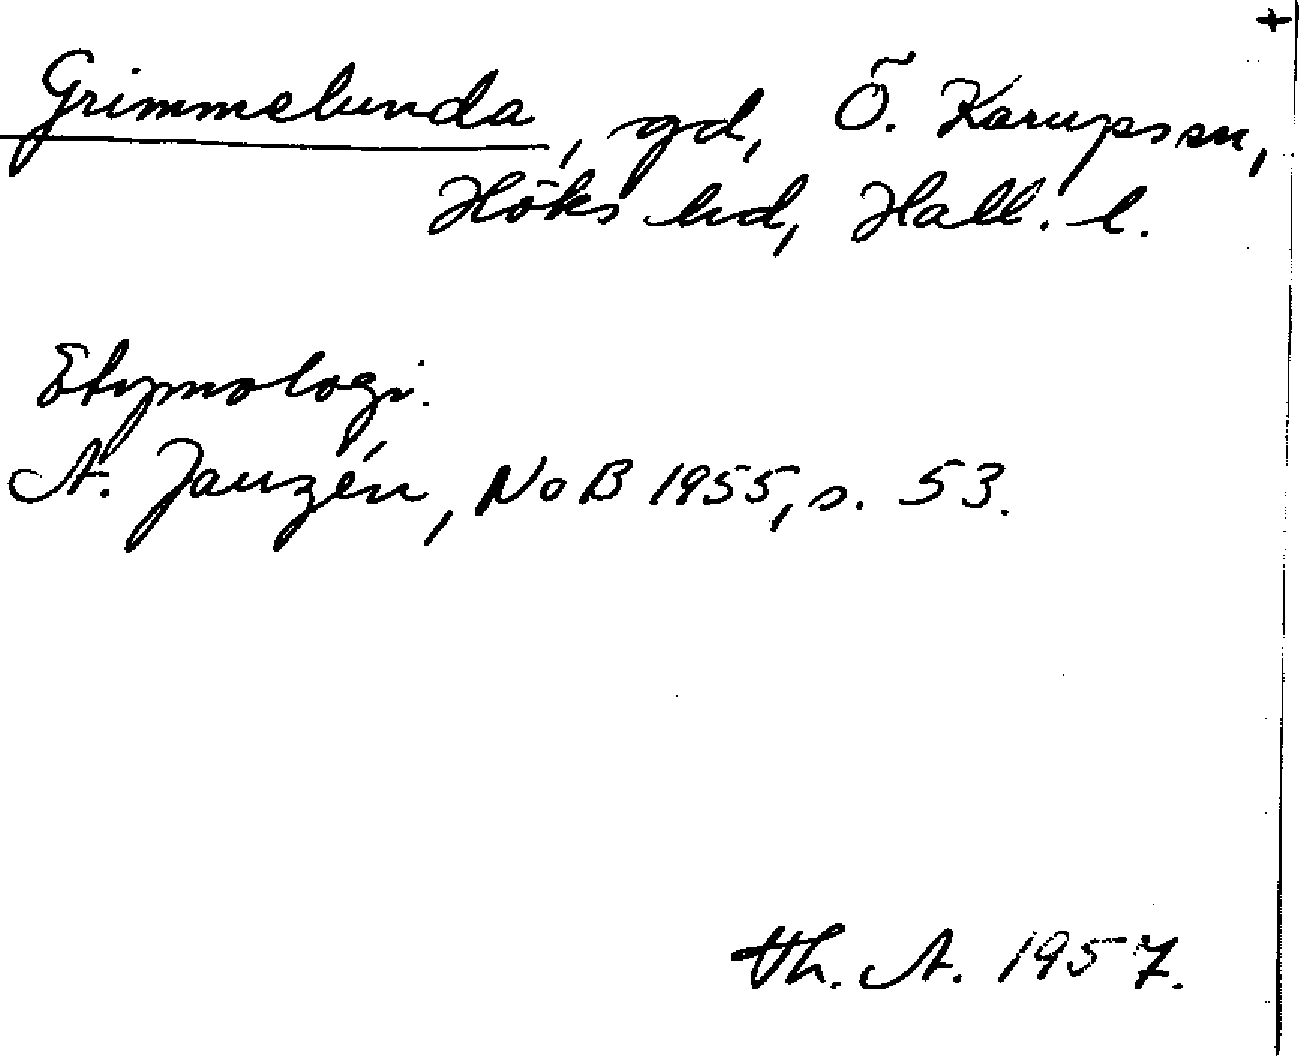 +
Grimmelunda, gd, Ö. Karups sn,
Höks hd, Hall. l.
Etymologi.
A. Janzén, NoB 1955, s. 53.
Th. A. 1957.